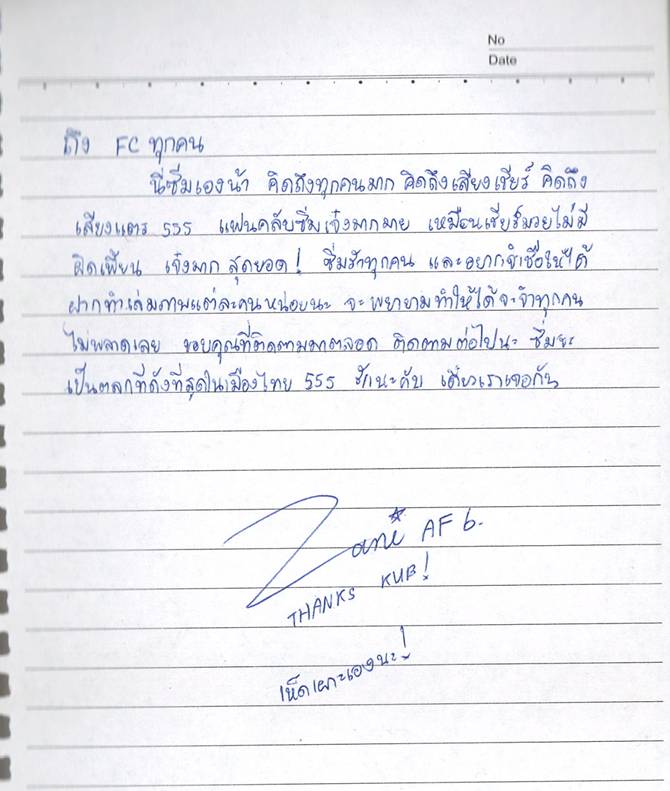 No
Date
ถึง FC ทุกคน
นี่ซีมเองน้า คิดถึงทุกคนมาก คิดถึงเสียงเชียร์ คิดถึง
เสียงแตร 555 แฟนคลับซีมเจ๋งมากมาย เหมือนเชียร์มวยไม่มี
ผิดเพี้ยน เจ๋งมาก สุดยอด! ซีมรักทุกคน และอยากจำชื่อให้ได้
ฝากทำเล่มภาพแต่ละคนหน่อยนะ จะพยายามทำให้ได้จะจำทุกคน
ไม่พลาดเลย ขอบคุณที่ติดตามมาตลอด ติดตามต่อไปนะ ซีมจะ
เป็นตลกที่ดังที่สุดในเมืองไทย 555 รักนะคับ เดี๋ยวเราเจอกัน
AF 6.
THANKS KUB!
เห็ดเผาะเองนะ!